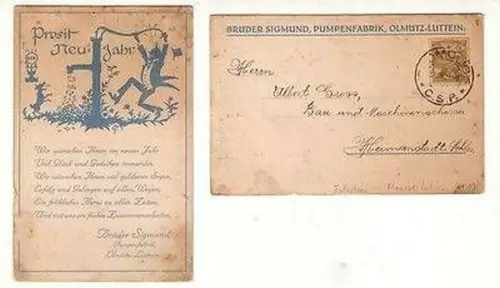 Prosit
Neu Jahr
Wir wünschen Ihnen im neuen Jahr
Viel Glück und Gedeihen immerdar.
Wir wünschen Ihnen viel goldenen Segen,
Erfolg und Gelingen auf allen Wegen,
Ein fröhliches Herze zu allen Zeiten,
Und mit uns ein frohes Zusammenarbeiten.
Brüder Sigmund
Pumpenfabrik,
Olmütz-Lutein
BRÜDER SIGMUND, PUMPENFABRIK, OLMÜTZ-LUTTEIN:
Herrn
Albert Gross,
Bau und Maschinenschlosser
Hermannstadt
Č.S.P.